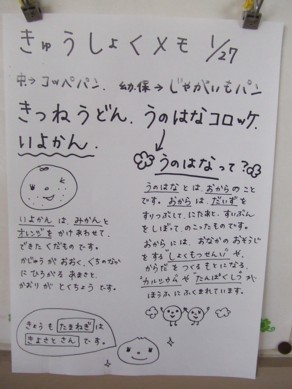 きゅうしょくメモ 1/27
中→コッペパン. 幼.保→じゃがいもパン
きつねうどん. うのはなコロッケ.
いよかん.
うのはなって?
いよかんは、みかんと
オレンジをかけあわせて、
できたくだものです。
かじゅうがおおく、くちのない
にひろがるあまさと、
かおりがとくちょうです。
うのはなとは、おからのこと
です。おからは、だいずを
すりつぶして、にたあと、すいぶん
をしぼって、のこったものです。
おからには、おなかのおそうじ
をする「しょくもつせんい」や、
からだをつくるもとになる、
カルシウムやたんぱくしつが
ほうふにふくまれています。
きょうもたまねぎは
きよさとさんです。